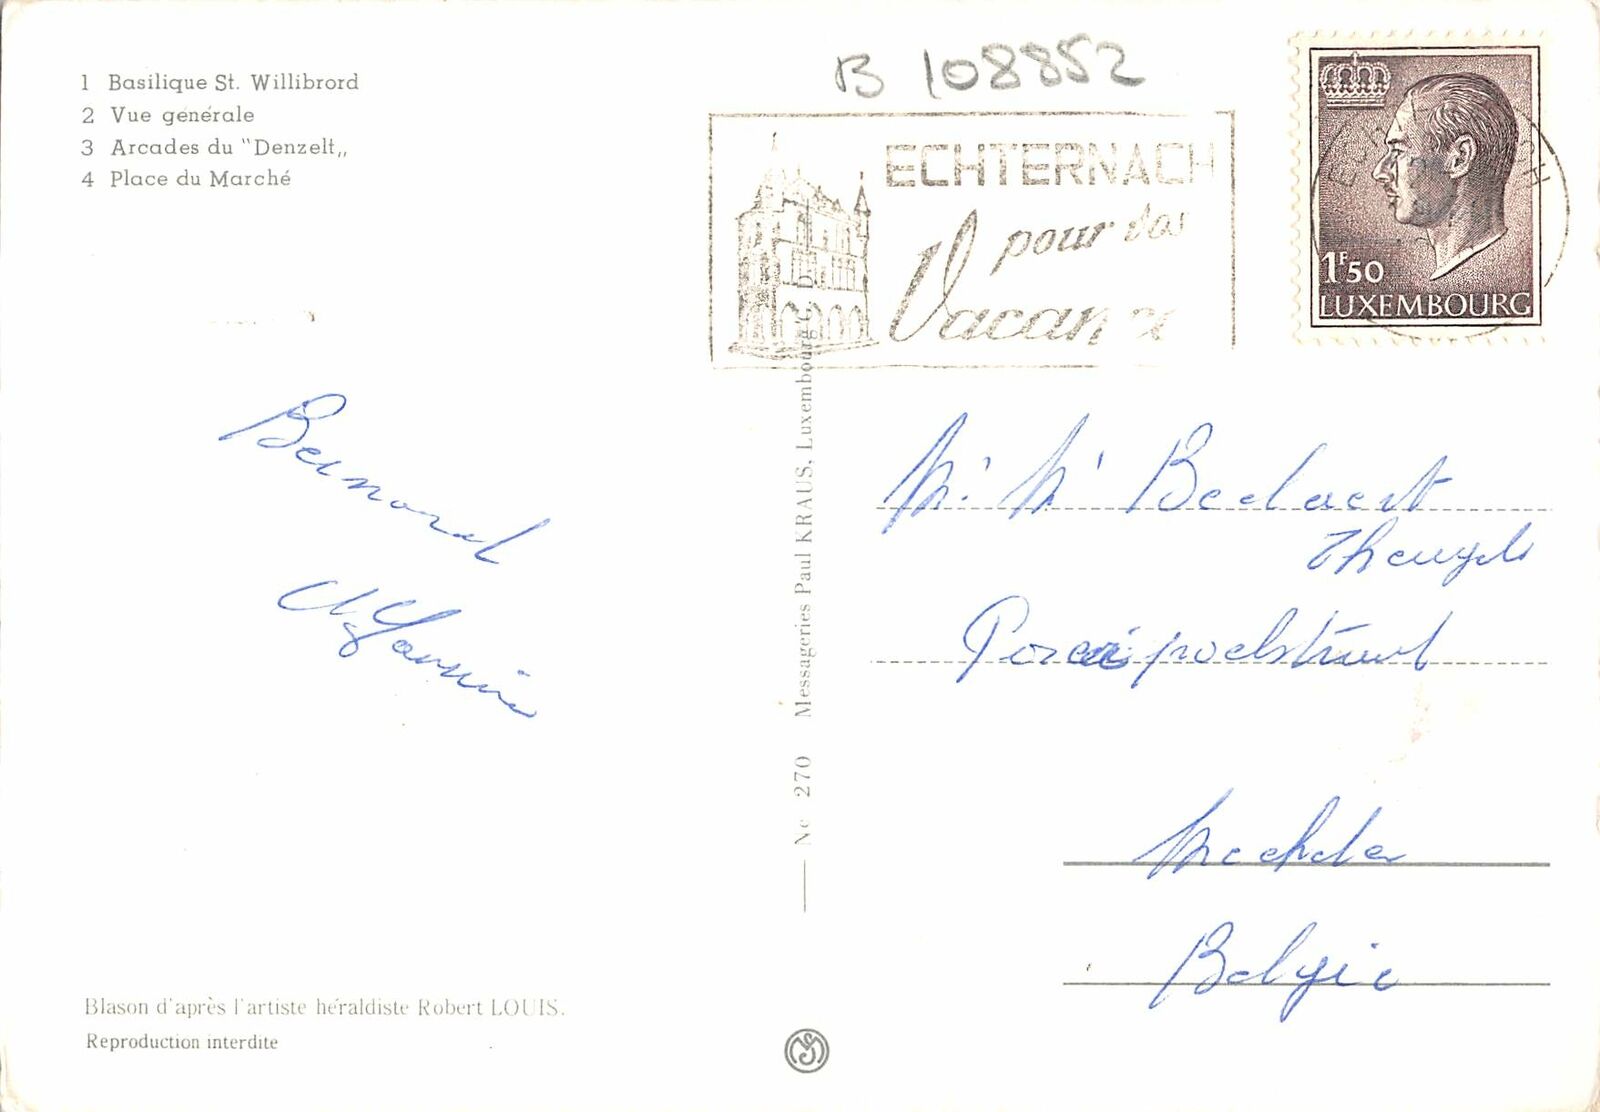 1 Basilique St. Willibrord
2 Vue générale
3 Arcades du "Denzelt„
4 Place du Marché
B 108852
ECHTERNACH
pour vos
Vacan
1F50
LUXEMBOURG
Bernard
M. M. Bedaert
Mechelen
Belgie
Nc 270 Messageries Paul KRAUS, Luxembourg G. D.
Blason d'après l'artiste héraldiste Robert LOUIS.
Reproduction interdite